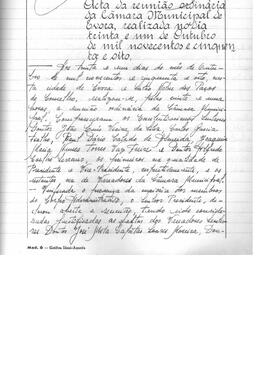 Acta da reunião ordinária
da Câmara Municipal de
Évora, realizada no dia
trinta e um de Outubro
de mil novecentos e cinquen
ta e oito.
— Aos trinta e um dias do mês de Outu-
bro de mil novecentos e cinquenta e oito, nes-
ta cidade de Évora e Paços
do Concelho, realizou-se, pelas e uma
horas, a reunião ordinária da Câmara Munici-
pal. Compareceram os Excelentíssimos Senhores
Doutor João Luís Vieira da Silva, Carlos Maria
Fialho, de Almeida, Joaquim
Maria Torres Vaz Freire e Doutor
Serrano, os primeiros na qualidade de
Presidente e Vice-Presidente, respectivamente, e os
restantes na de Vereadores da Câmara Municipal.
— Verificada a presença da maioria dos membros
do Corpo Administrativo, o Senhor Presidente, de-
clarou aberta a reunião, tendo sido conside-
radas justificadas as faltas dos Vereadores Senho-
res Doutor José Soares Moreira, Dou-
Mod. 6 —